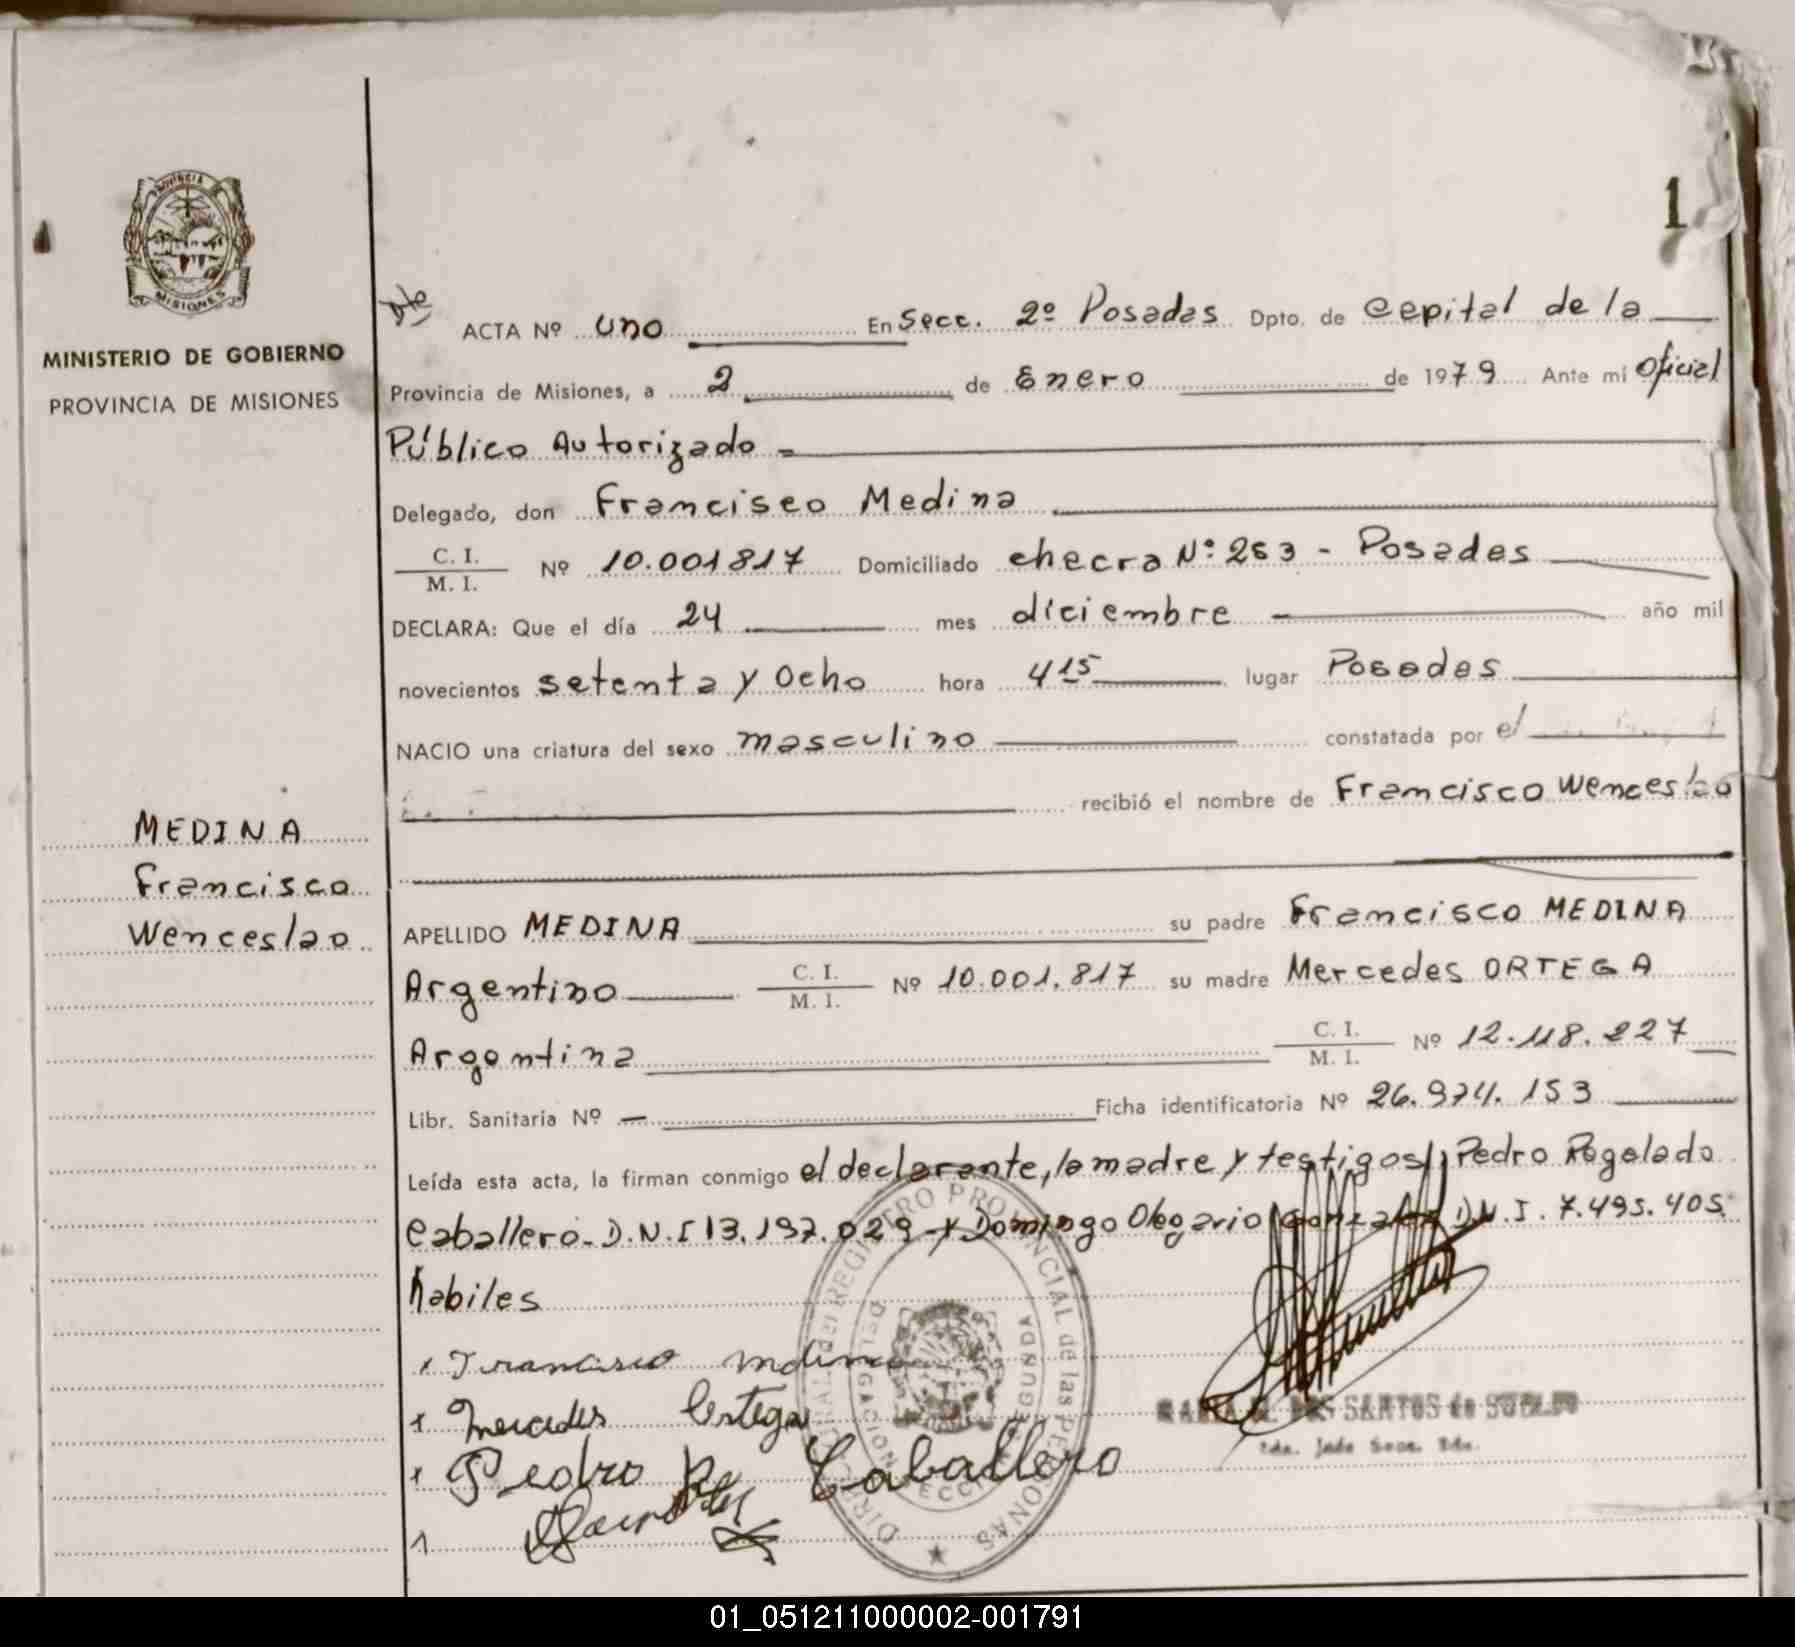 PROVINCIA
MISIONES
MINISTERIO DE GOBIERNO
PROVINCIA DE MISIONES
1
ACTA Nº uno En Secc. 2º Posadas Dpto. de Capital de la
Provincia de Misiones, a 2 de Enero de 1979 Ante mi Oficial
Público Autorizado
Delegado, don Francisco Medina
C. I.
M. I.
Nº 10.001817 Domiciliado checra Nº 263 - Posadas
DECLARA: Que el día 24 mes diciembre año mil
novecientos setenta y Ocho hora 4 15 lugar Posadas
NACIO una criatura del sexo masculino constatada por el
recibió el nombre de Francisco Wenceslao
MEDINA
Francisco
Wenceslao
APELLIDO MEDINA su padre Francisco MEDINA
Argentino C. I. M. I. Nº 10.001.817 su madre Mercedes ORTEGA
Argentina C. I. M. I. Nº 12.118.227
Libr. Sanitaria Nº — Ficha identificatoria Nº 26.974.153
Leída esta acta, la firman conmigo el declarante, la madre y testigos Pedro Regalado
Caballero. D.N.I 13.197.029 y Domingo Olegario Gonzalez D.N.I. 7.495.405.
habiles
x Francisco Medina
x Mercedes Ortega
x Pedro R. Caballero
DIRECCION GRAL del REGISTRO PROVINCIAL de las PERSONAS
DELEGACION SECCION SEGUNDA
DOS SANTOS de
01_051211000002-001791